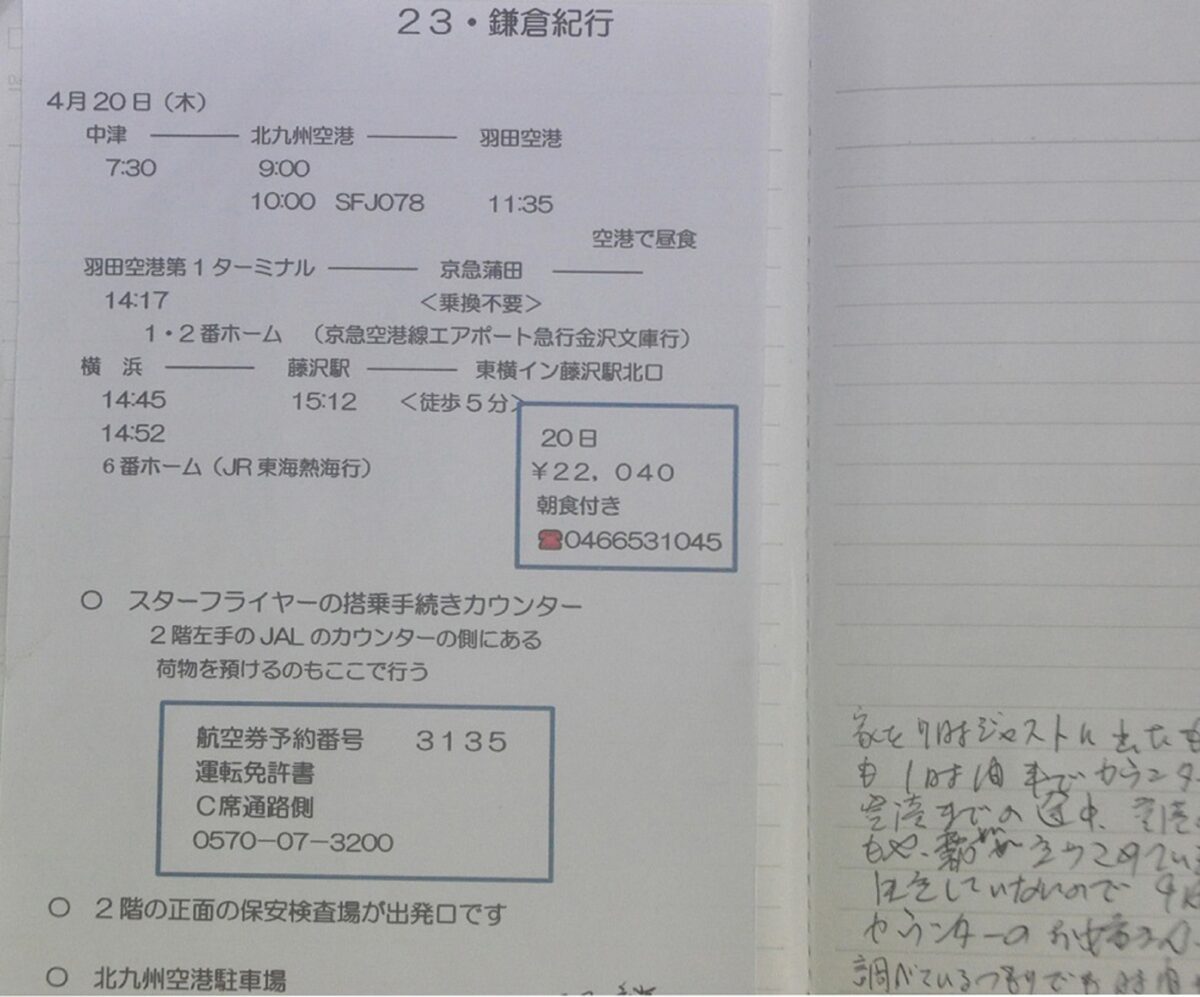 23・鎌倉紀行
4月20日（木）
中津 ―――― 北九州空港 ―――― 羽田空港
7:30 9:00
10:00 SFJ078 11:35
空港で昼食
羽田空港第1ターミナル ―――― 京急蒲田 ――――
14:17 ＜乗換不要＞
1・2番ホーム （京急空港線エアポート急行金沢文庫行）
横 浜 ―――― 藤沢駅 ―――― 東横イン藤沢駅北口
14:45 15:12 ＜徒歩5分＞
14:52
6番ホーム（JR東海熱海行）
20日
￥22，040
朝食付き
☎0466531045
○ スターフライヤーの搭乗手続きカウンター
2階左手のJALのカウンターの側にある
荷物を預けるのもここで行う
航空券予約番号 3135
運転免許書
C席通路側
0570-07-3200
○ 2階の正面の保安検査場が出発口です
○ 北九州空港駐車場
家を7時ジャストに出た
も1時間までカウンタ
空港までの途中、空港
もや、立ちこめてい
していないので
カウンターのお姉さん
調べているつもりでも時間